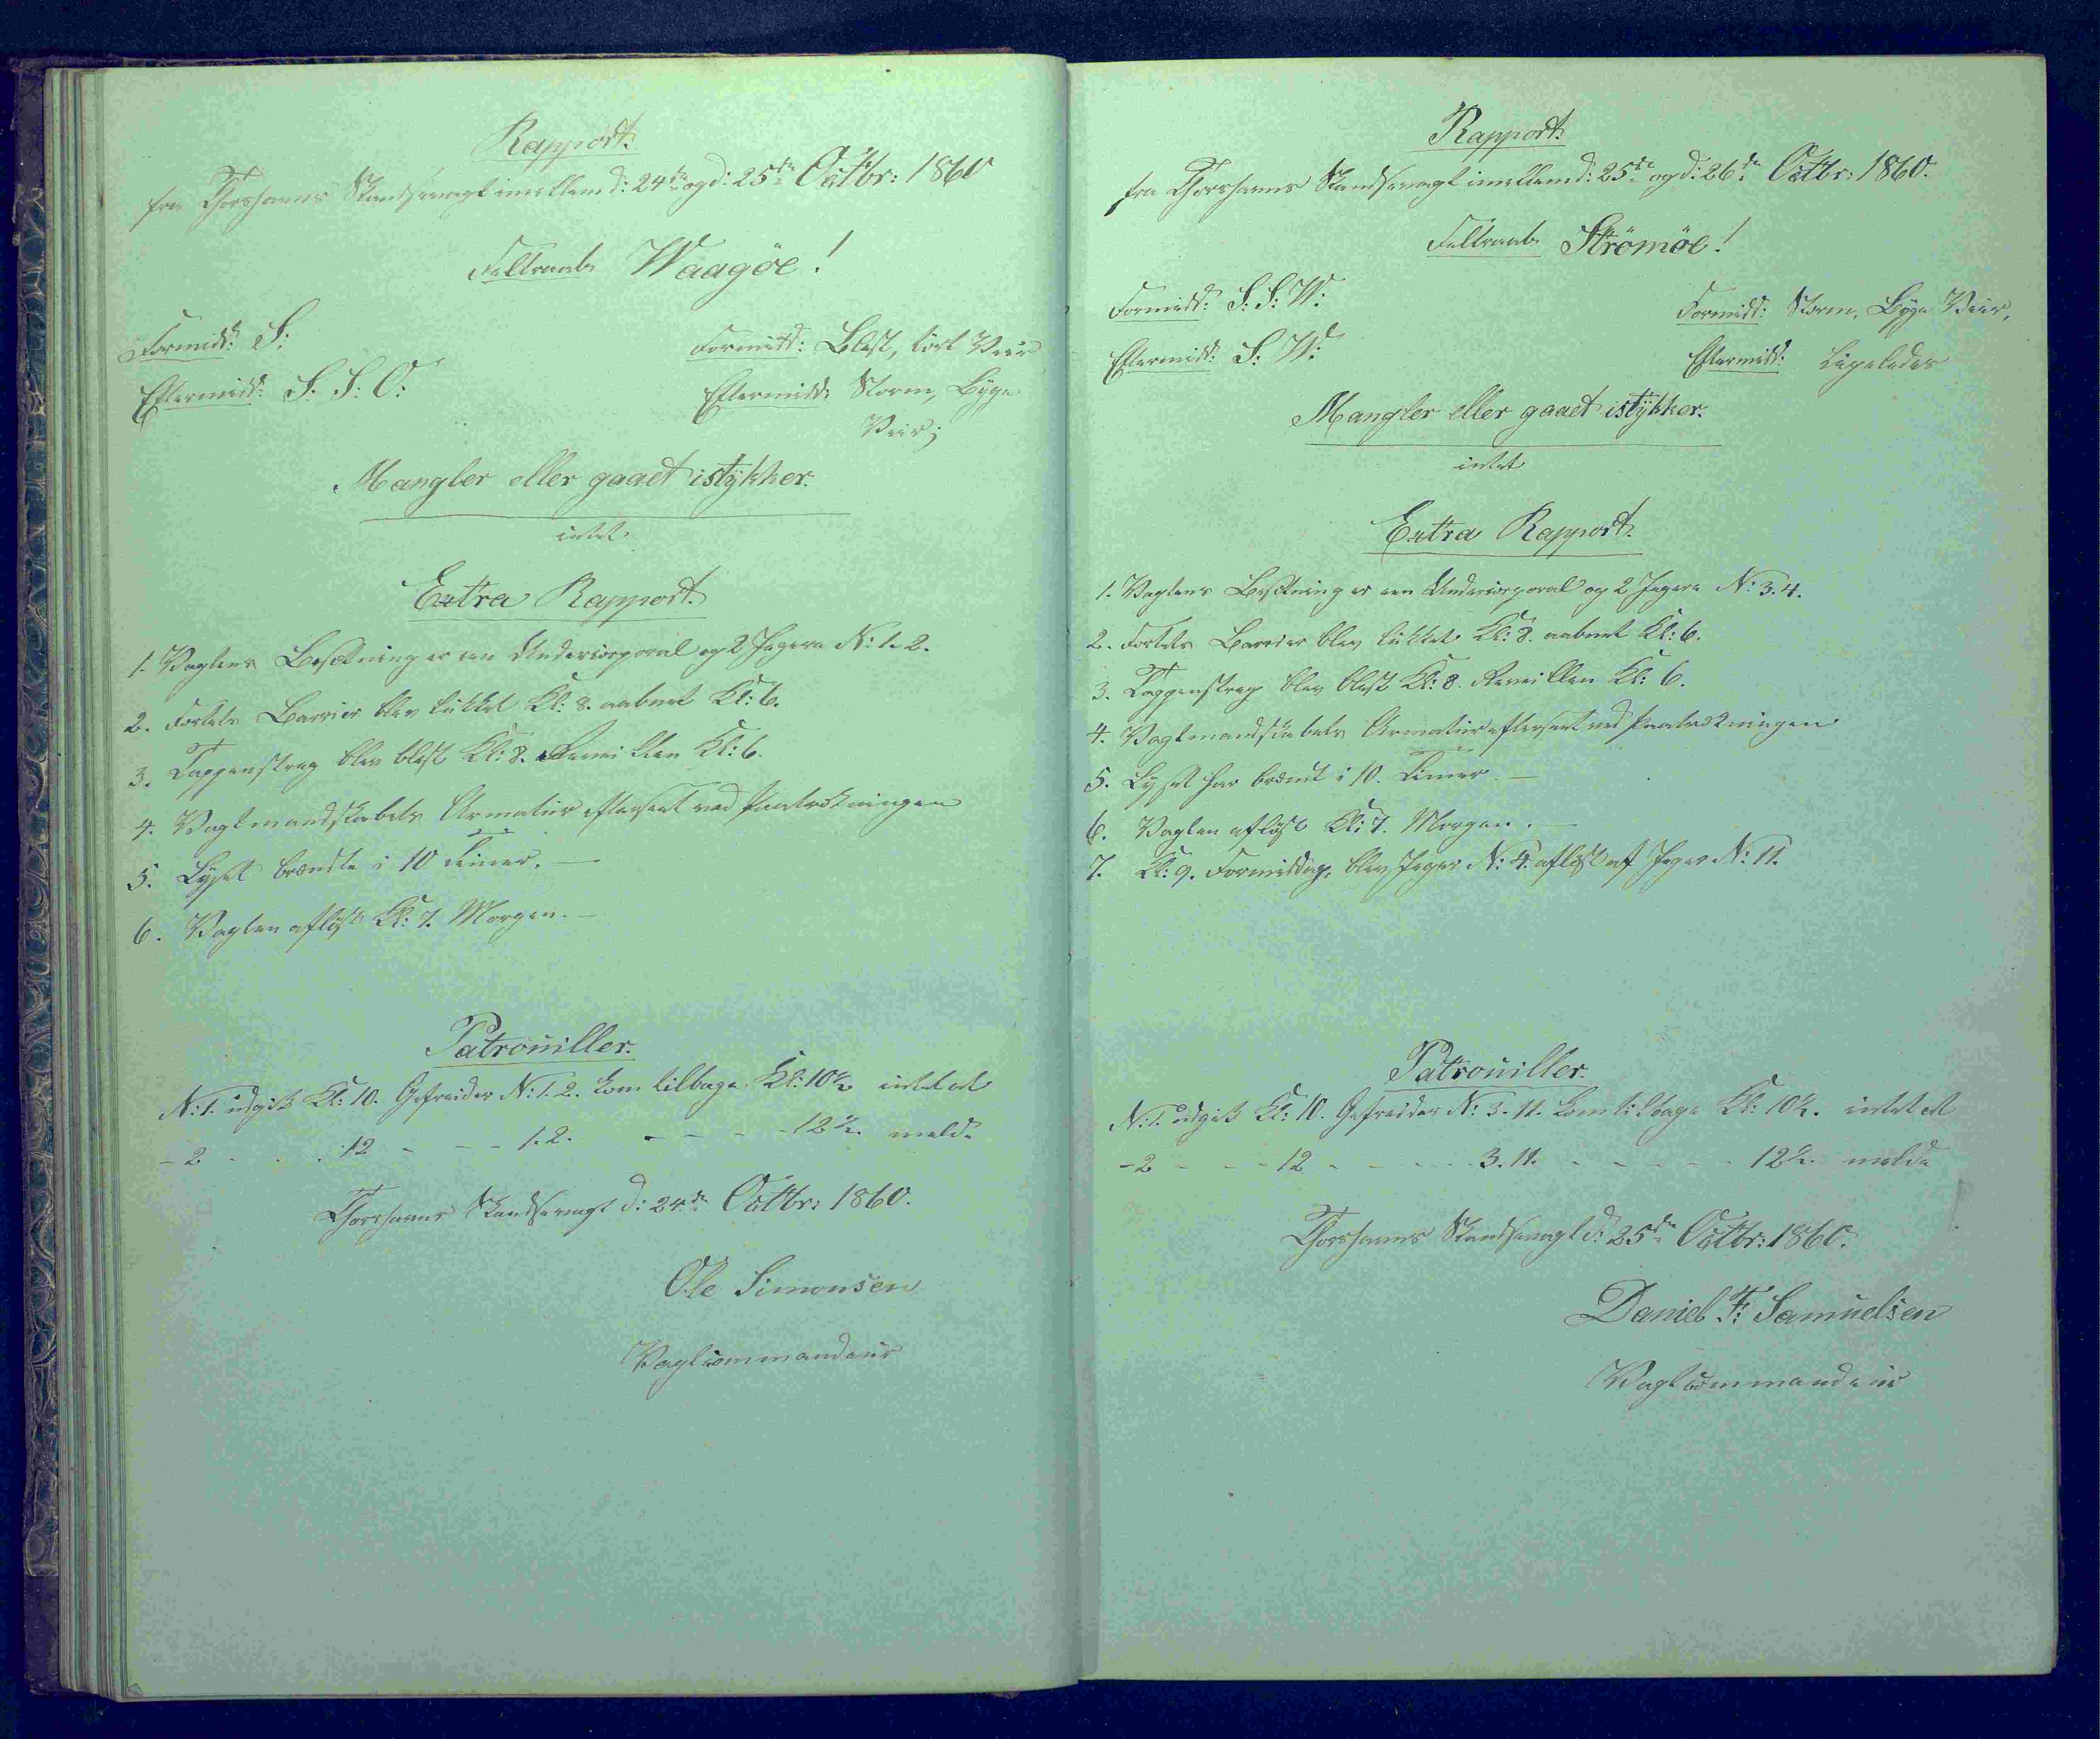 Rapport.
fra Thorshavns Skandsevagt imellem d: 24de og d: 25de Octbr: 1860
Feltraab Waagöe!
Formidd: S:
Formidd: Blæst, tört Veir
Eftermidd: S. S: O:
Eftermidd: Storm, Byge
Veir;
Mangler eller gaaet istykker.
intet
Extra Rapport.
1. Vagtens Besætning er een Undercorporal og 2 Jegere N: 1. 2.
2. Fortets Barrier blev lukket Kl: 8. aabnet Kl: 6.
3. Tappenstreg blev blæst Kl: 8. Reveillen Kl: 6.
4. Vagtmandskabets Armatur efterseet ved Paatrædningen
5. Lyset brændte i 10 Timer. —
6. Vagten aflöst Kl: 7. Morgen. —
Patrouiller.
N: 1. udgik Kl: 10. Gefreider N: 1. 2. kom tilbage Kl: 10½ intet at
- 2 - - - 12 - - - 1. 2. - - - - 12½. melde
Thorshavns Skandsevagt d: 24de Octbr: 1860.
Ole Simonsen
Vagtcommandeur
Rapport.
fra Thorshavns Skandsevagt imellem d: 25de og d: 26de Octbr: 1860.
Feltraab Strömöe!
Formidd: S: S: W:
Formidd: Storm, Byge Veir,
Eftermidd: S: W:
Eftermidd: Ligeledes
Mangler eller gaaet istykker.
intet
Extra Rapport.
1. Vagtens Besætning er een Undercorporal og 2 Jegere N: 3. 4.
2. Fortets Barrier blev lukket Kl: 8. aabnet Kl: 6.
3. Tappenstreg blev blæst Kl: 8. Reveillen Kl: 6.
4. Vagtmandskabets Armatur efterseet ved Paatrædningen
5. Lyset har brændt i 10. Timer. —
6. Vagten aflöst Kl: 7. Morgen. —
7. Kl: 9. Formiddag, blev Jeger N: 4. aflöst af Jeger N: 11.
Patrouiller.
N: 1. udgik Kl: 10. Gefreider N: 3. 11. kom tilbage Kl: 10½. intet at
- 2 - - - 12 - - - - 3. 11. - - - - - 12½. melde
Thorshavns Skandsevagt d: 25de Octbr: 1860.
Daniel F: Samuelsen
Vagtcommandeur